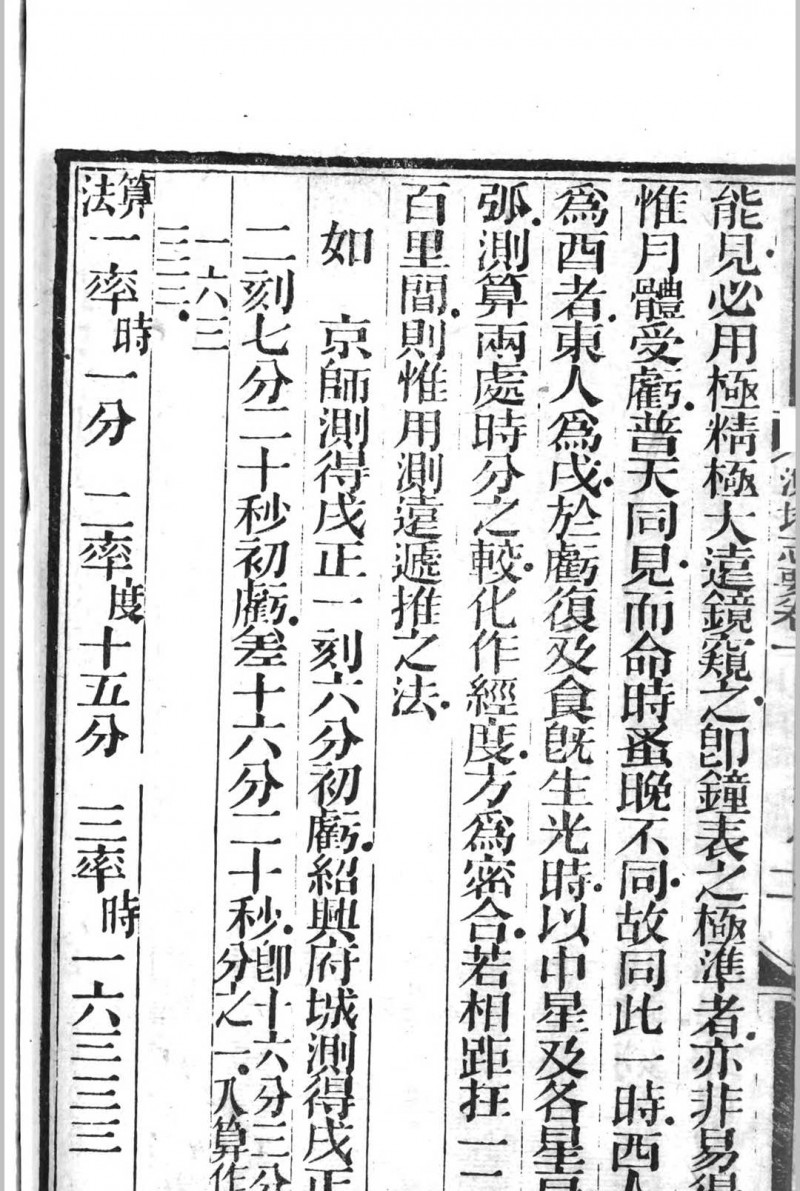 能見必用極精極大遠鏡窺之卽鐘表之極準者亦非易得
惟月體受虧普天同見而命時蚤晚不同故同此一時西人
爲酉者東人爲戌於虧復及食旣生光時以中星及各星
弧測算兩處時分之較化作經度方爲密合若相距在一二
百里間則惟用測遠遞推之法
如　京師測得戌正一刻六分初虧紹興府城測得戌正
二刻七分二十秒初虧差十六分二十秒卽十六分三分
分之一入算作
一六三
三三
算法一率時一分　二率度十五分　三率時一六三三三